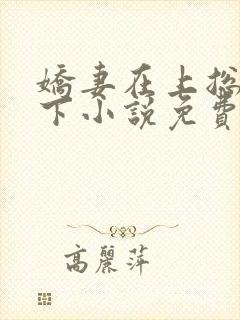 嬌妻在上總
下小說免費
高麗萍